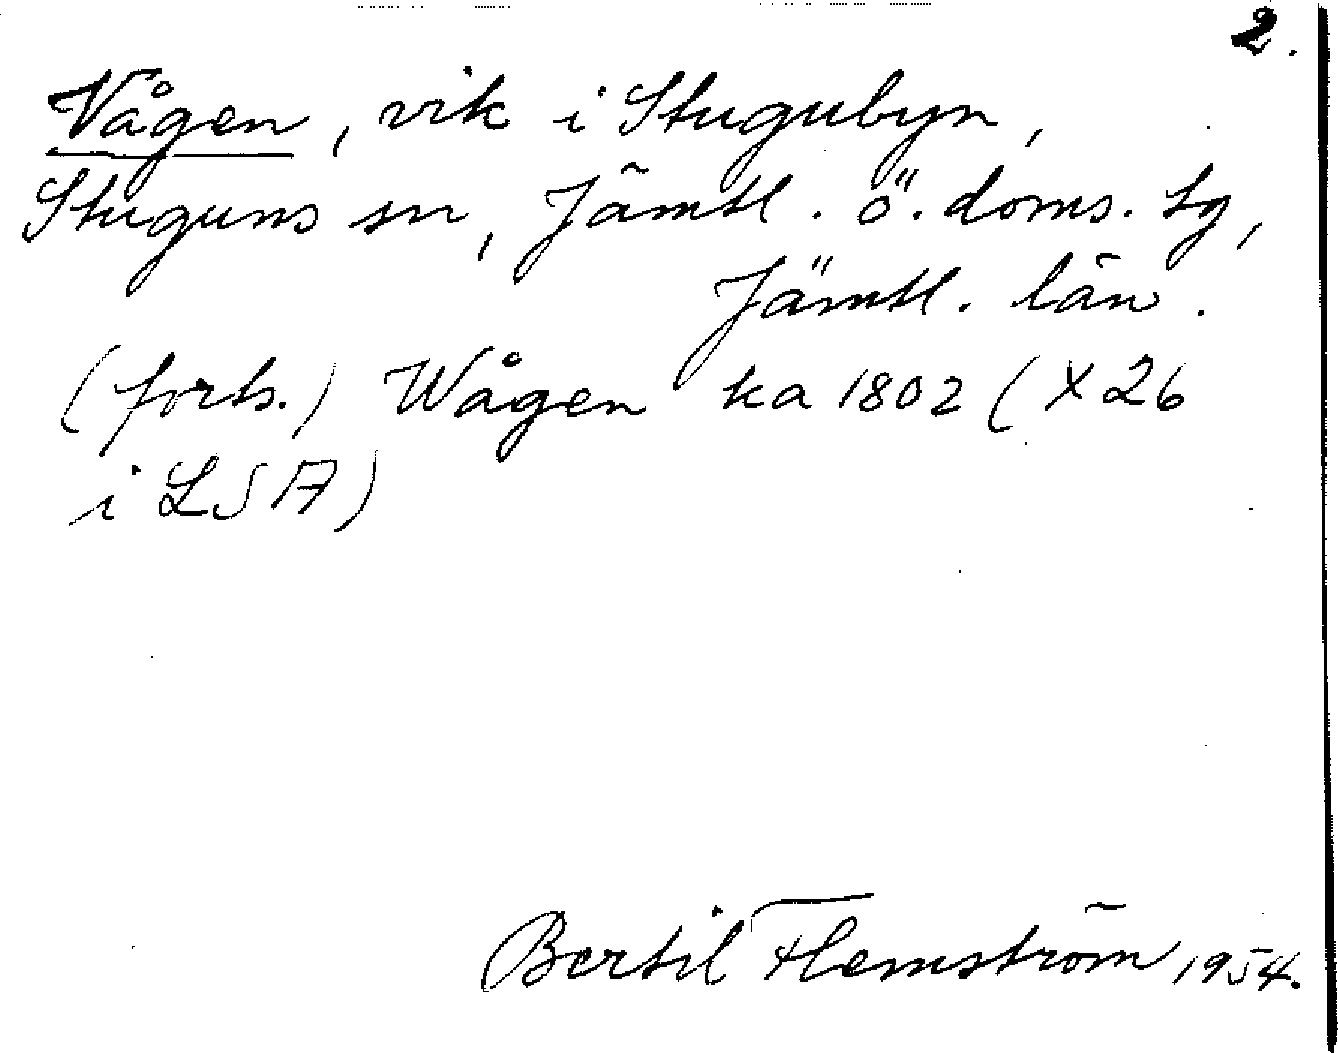 2.
Vågen, vik i Stugubyn,
Stuguns sn, Jämtl. ö. doms. tg,
Jämtl. län.
(forts.) Wågen ka 1802 (X26
i LSA)
Bertil Flemström 1954.